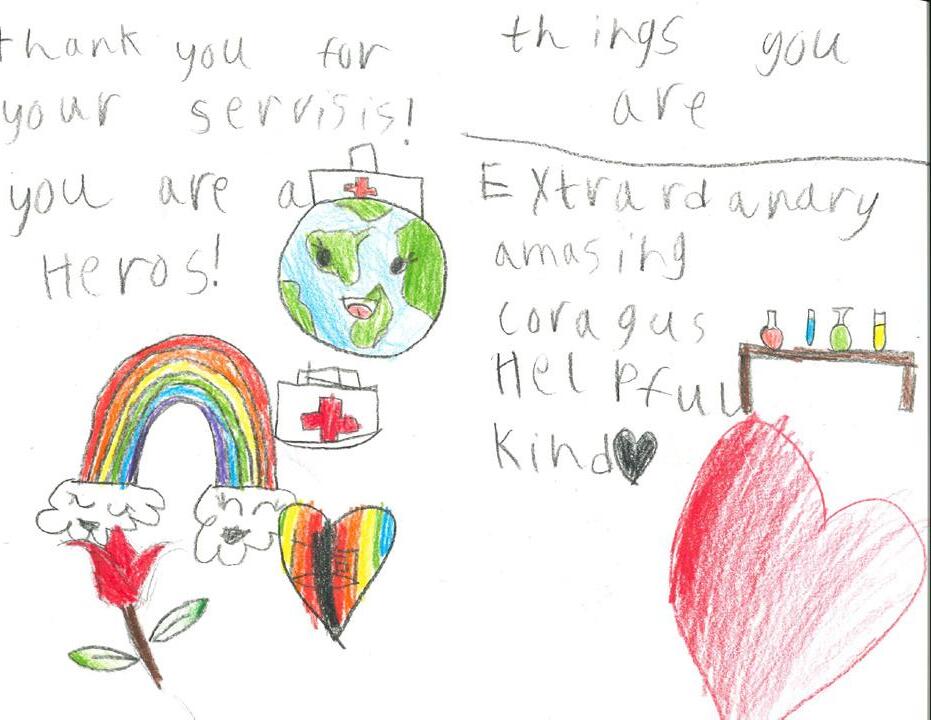 thank you for
your servisis!
you are a
Heros!
things you
are
Extrardandry
amasing
coragus
Helpfull
Kind